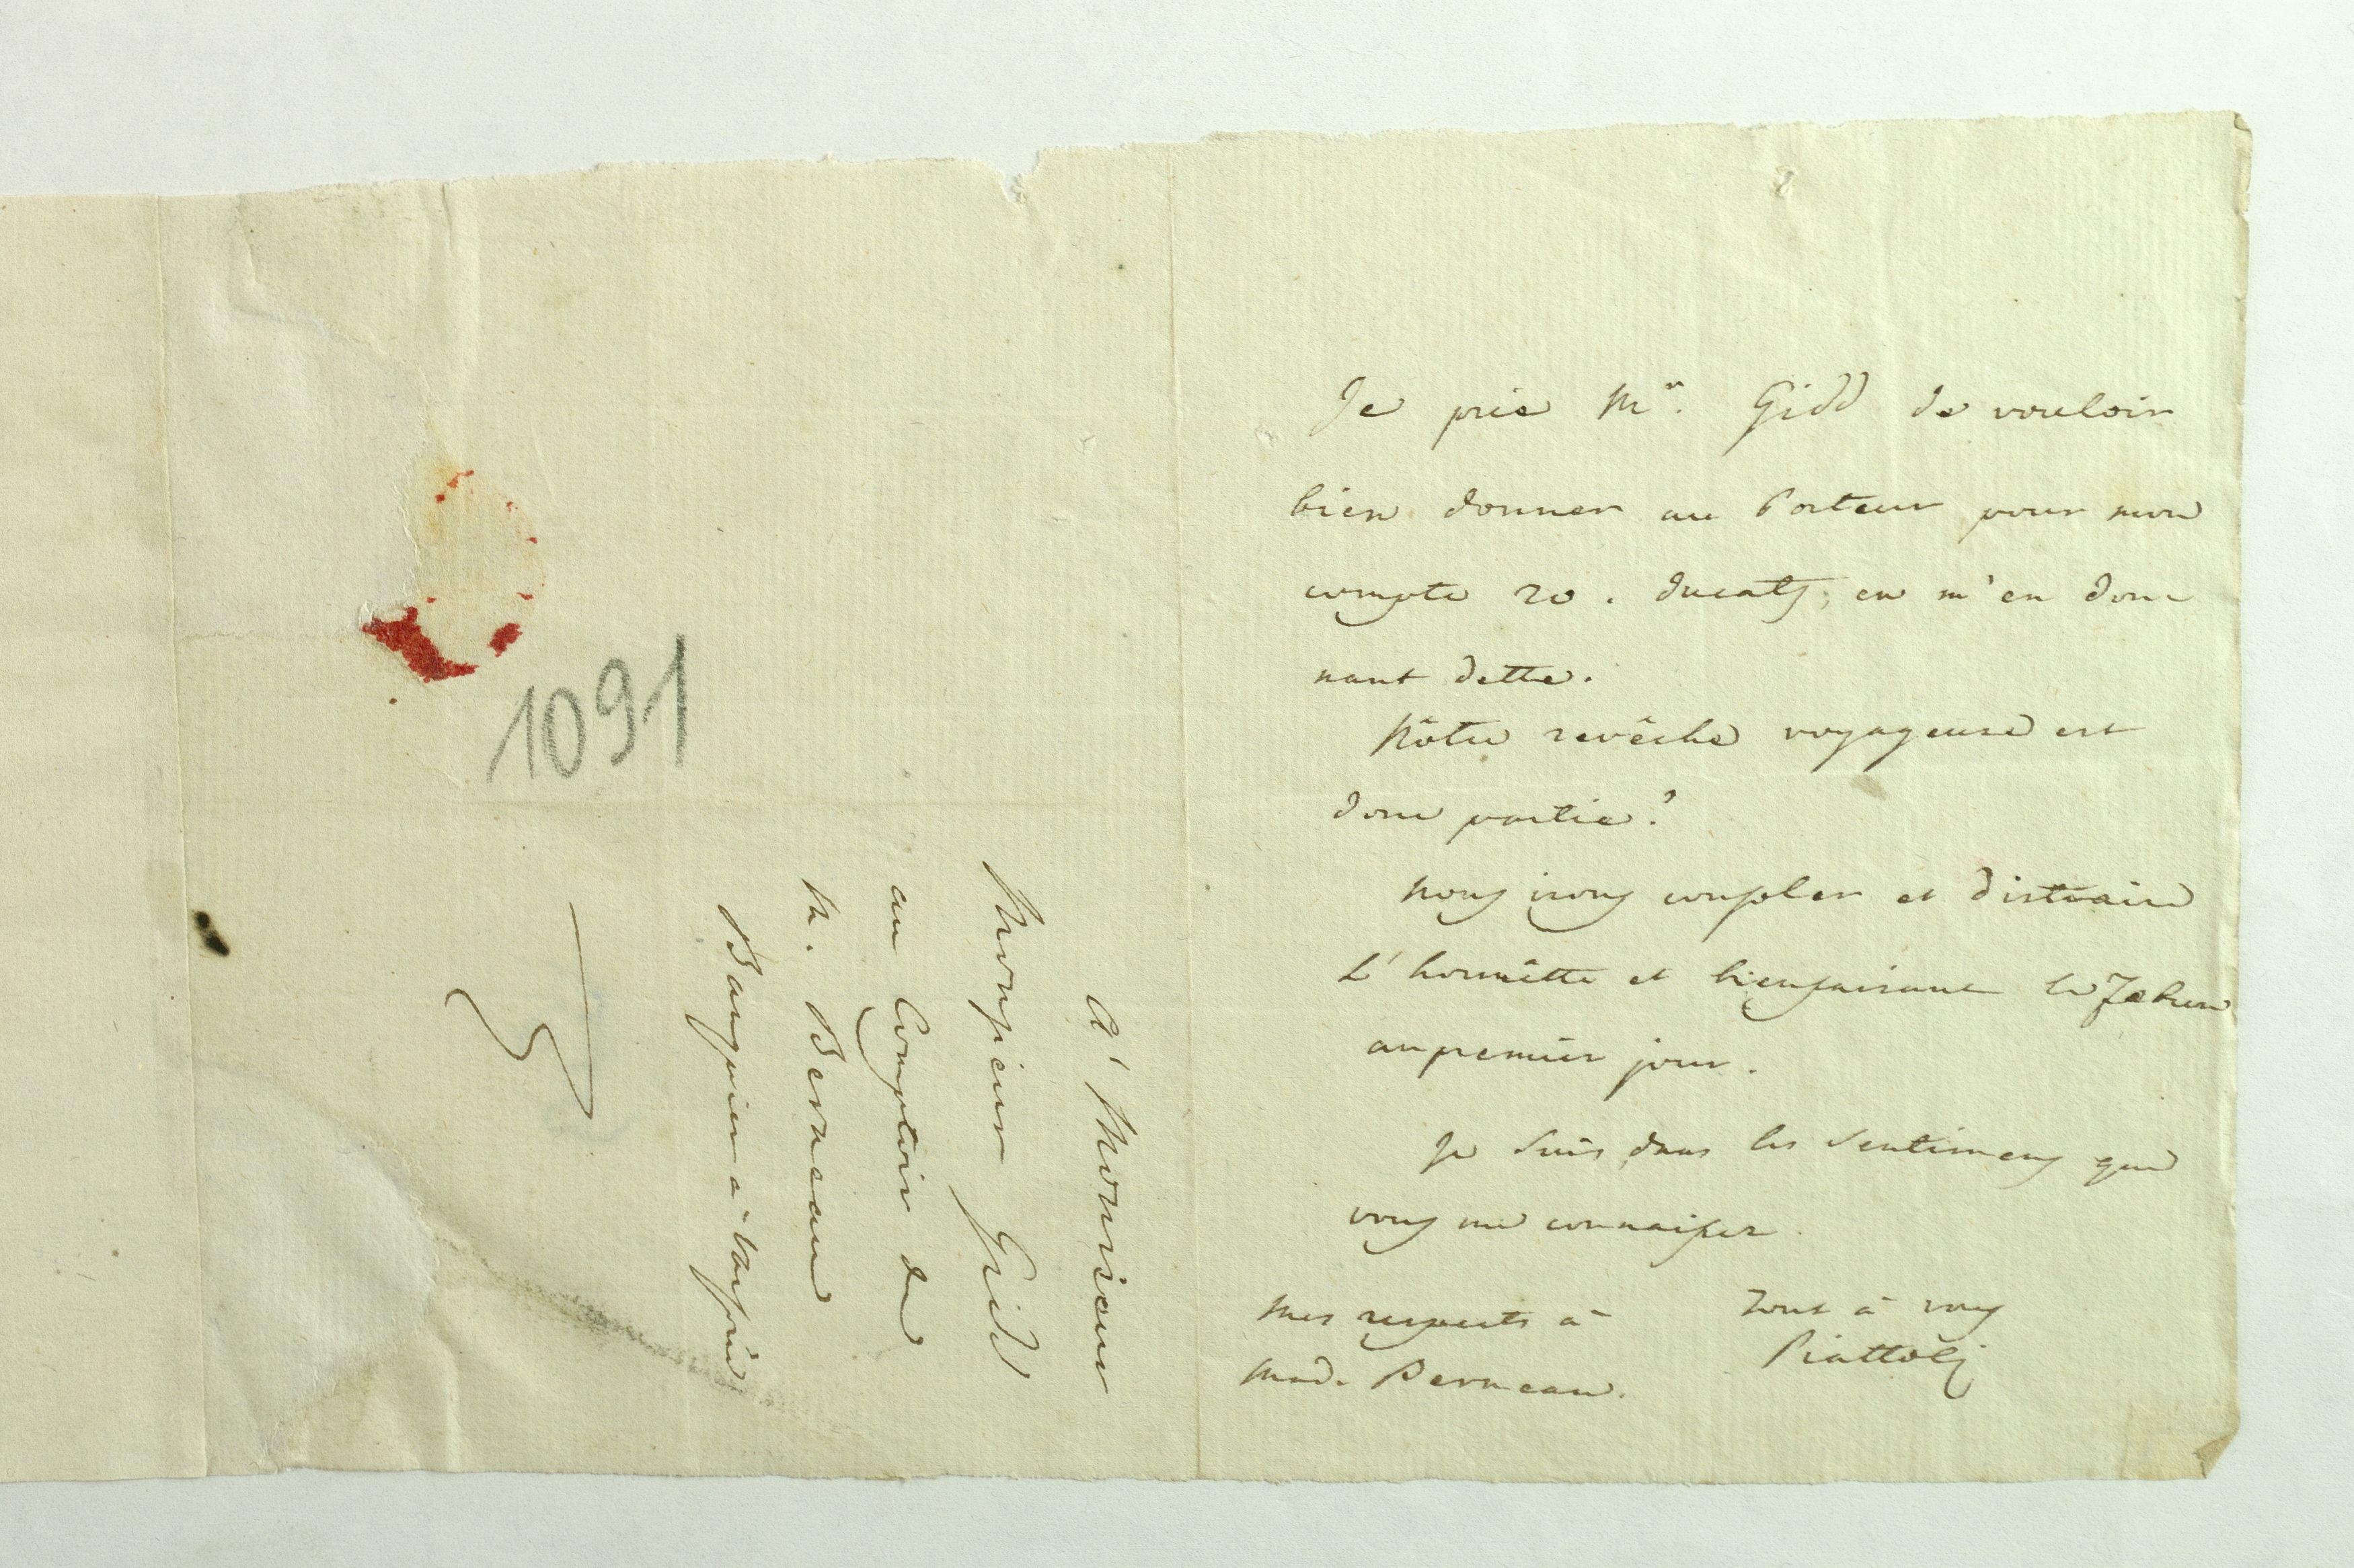 Je prie Mr. Gidd de vouloir
bien donner au Porteur pour mon
compte 20. ducats, en m'en don
nant dette.
Nôtre revêche voyageuse est
donc partie?
Nous irons consoler et distraire
L'honnêtte et bienfaisant
au premier jour.
Je suis dans les sentimens que
vous me connaisses.
Mes respects à
Mad. Berneau.
Tout à vous
Piattolj
A' Monsieur
Monsieur Gidd
au Comptoir de
M. Berneau
Banquier à
1091